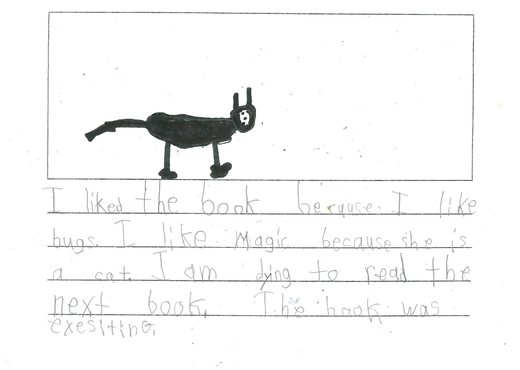 I liked the book because. I like
bugs. I like Magic because she is
a cat. I am dying to read the
next book. The book was
exesiting.